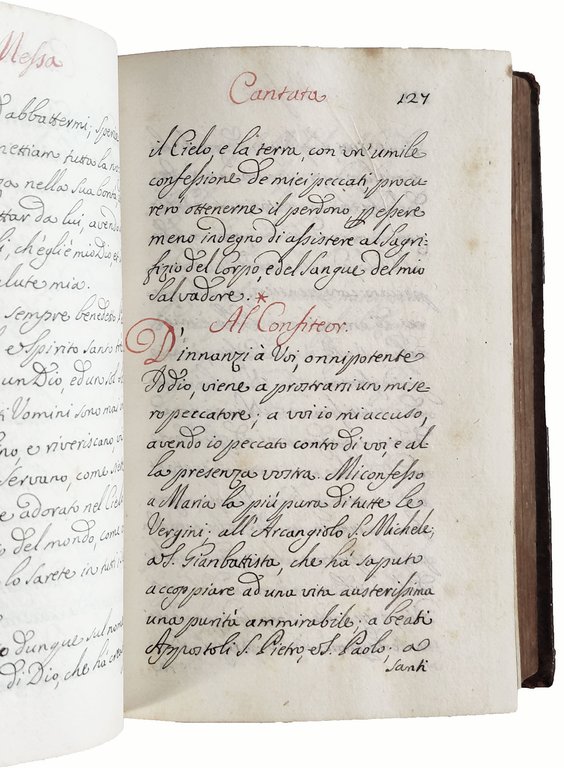 Messa
d'abbattermi; spera
mettiam tutta la no
za nella sua bontà
ttar da lui, avendo
i, ch'egli è mio Dio, e
alute mia.
sempre benedetto
e Spirito santo
un Dio, ed un sol
ti Uomini sono mai
no, e riveriscano,
servano, come
e adorato nel Cielo
del mondo, come
lo sarete in tutti
o dunque sul nome
di Dio, che hà
Cantata 127
il Cielo, e la terra, con un'umile
confessione de miei peccati, procu-
rerò ottenerne il perdono p essere
meno indegno di assistere al Sagri-
fizio del Corpo, e del Sangue del mio
Salvadore. *
Al Confiteor.
Dinnanzi à Voi, onnipotente
Iddio, viene a prostrarsi un mise-
ro peccatore; a voi io mi accuso,
avendo io peccato contro di voi, e al-
la presenza vostra. Mi confesso
a Maria la più pura di tutte le
Vergini; all'Arcangiolo S. Michele;
a S. Gianbattista, che hà saputo
accoppiare ad una vita austerissima
una purità ammirabile; a beati
Appostoli S. Pietro, e S. Paolo; a
santi